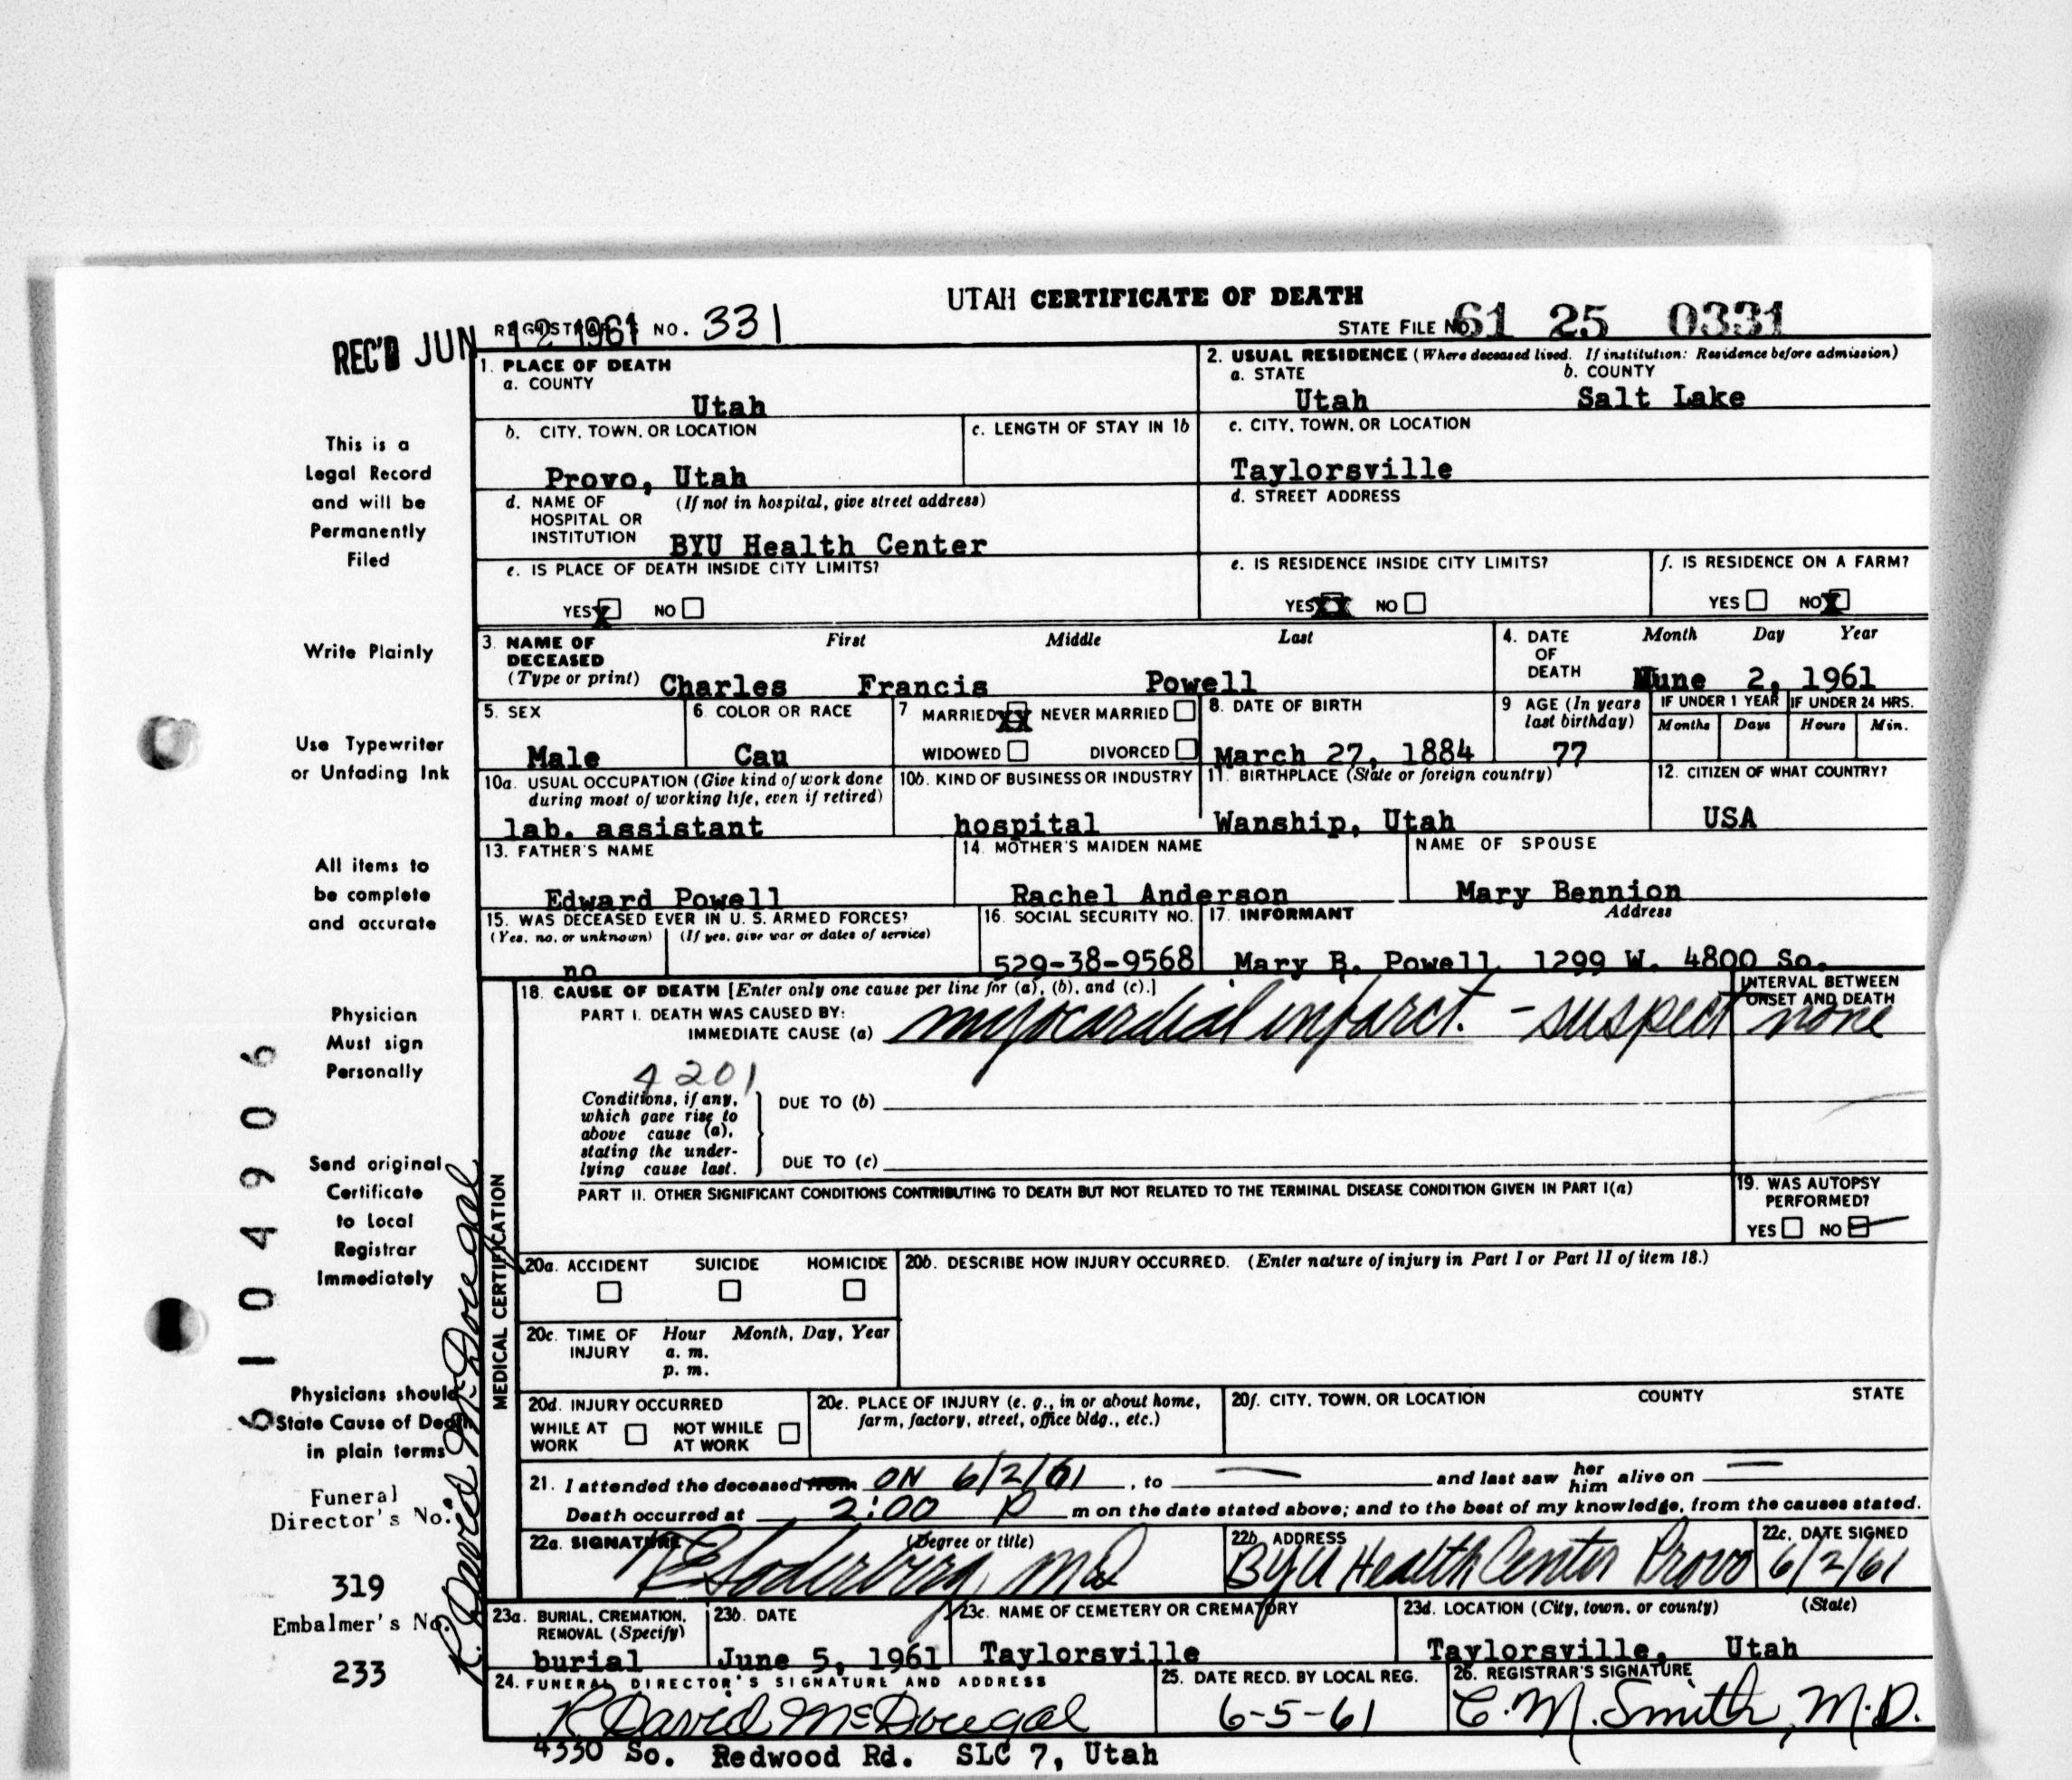 UTAH CERTIFICATE OF DEATH
REC'D JUN 12 1961
REGISTRAR'S NO. 331
STATE FILE NO. 61 25 0331
1. PLACE OF DEATH
a. COUNTY
Utah
2. USUAL RESIDENCE (Where deceased lived. If institution: Residence before admission)
a. STATE b. COUNTY
Utah Salt Lake
b. CITY, TOWN, OR LOCATION
Provo, Utah
c. LENGTH OF STAY IN 1b
c. CITY, TOWN, OR LOCATION
Taylorsville
d. NAME OF HOSPITAL OR INSTITUTION (If not in hospital, give street address)
BYU Health Center
d. STREET ADDRESS
e. IS PLACE OF DEATH INSIDE CITY LIMITS?
YES X NO
e. IS RESIDENCE INSIDE CITY LIMITS?
YES XX NO
f. IS RESIDENCE ON A FARM?
YES NO X
3. NAME OF DECEASED (Type or print)
First Middle Last
Charles Francis Powell
4. DATE OF DEATH
Month Day Year
June 2, 1961
5. SEX
Male
6. COLOR OR RACE
Cau
7. MARRIED XX NEVER MARRIED
WIDOWED DIVORCED
8. DATE OF BIRTH
March 27, 1884
9. AGE (In years last birthday)
77
IF UNDER 1 YEAR
Months Days
IF UNDER 24 HRS.
Hours Min.
10a. USUAL OCCUPATION (Give kind of work done during most of working life, even if retired)
lab. assistant
10b. KIND OF BUSINESS OR INDUSTRY
hospital
11. BIRTHPLACE (State or foreign country)
Wanship, Utah
12. CITIZEN OF WHAT COUNTRY?
USA
13. FATHER'S NAME
Edward Powell
14. MOTHER'S MAIDEN NAME
Rachel Anderson
NAME OF SPOUSE
Mary Bennion
15. WAS DECEASED EVER IN U. S. ARMED FORCES?
(Yes, no, or unknown) (If yes, give war or dates of service)
no
16. SOCIAL SECURITY NO.
529-38-9568
17. INFORMANT Address
Mary B. Powell 1299 W. 4800 So.
MEDICAL CERTIFICATION
18. CAUSE OF DEATH [Enter only one cause per line for (a), (b), and (c).]
INTERVAL BETWEEN ONSET AND DEATH
PART I. DEATH WAS CAUSED BY:
IMMEDIATE CAUSE (a) myocardial infarct. - suspect none
4201
Conditions, if any, which gave rise to above cause (a), stating the underlying cause last.
DUE TO (b)
DUE TO (c)
PART II. OTHER SIGNIFICANT CONDITIONS CONTRIBUTING TO DEATH BUT NOT RELATED TO THE TERMINAL DISEASE CONDITION GIVEN IN PART I(a)
19. WAS AUTOPSY PERFORMED?
YES NO
20a. ACCIDENT SUICIDE HOMICIDE
20b. DESCRIBE HOW INJURY OCCURRED. (Enter nature of injury in Part I or Part II of item 18.)
20c. TIME OF INJURY Hour Month, Day, Year
a. m.
p. m.
20d. INJURY OCCURRED
WHILE AT WORK NOT WHILE AT WORK
20e. PLACE OF INJURY (e. g., in or about home, farm, factory, street, office bldg., etc.)
20f. CITY, TOWN, OR LOCATION COUNTY STATE
21. I attended the deceased from ON 6/2/61, to — and last saw her him alive on —
Death occurred at 2:00 P m on the date stated above; and to the best of my knowledge, from the causes stated.
22a. SIGNATURE (Degree or title)
R E Soderberg MD
22b. ADDRESS
BYU Health Center Provo
22c. DATE SIGNED
6/2/61
23a. BURIAL, CREMATION, REMOVAL (Specify)
burial
23b. DATE
June 5, 1961
23c. NAME OF CEMETERY OR CREMATORY
Taylorsville
23d. LOCATION (City, town, or county) (State)
Taylorsville, Utah
24. FUNERAL DIRECTOR'S SIGNATURE AND ADDRESS
R David McDougal
4330 So. Redwood Rd. SLC 7, Utah
25. DATE RECD. BY LOCAL REG.
6-5-61
26. REGISTRAR'S SIGNATURE
C. M. Smith, M.D.
This is a
Legal Record
and will be
Permanently
Filed
Write Plainly
Use Typewriter
or Unfading Ink
All items to
be complete
and accurate
Physician
Must sign
Personally
Send original
Certificate
to Local
Registrar
Immediately
Physicians should
State Cause of Death
in plain terms
Funeral
Director's No.
319
Embalmer's No.
233
R. David McDougal
6104906